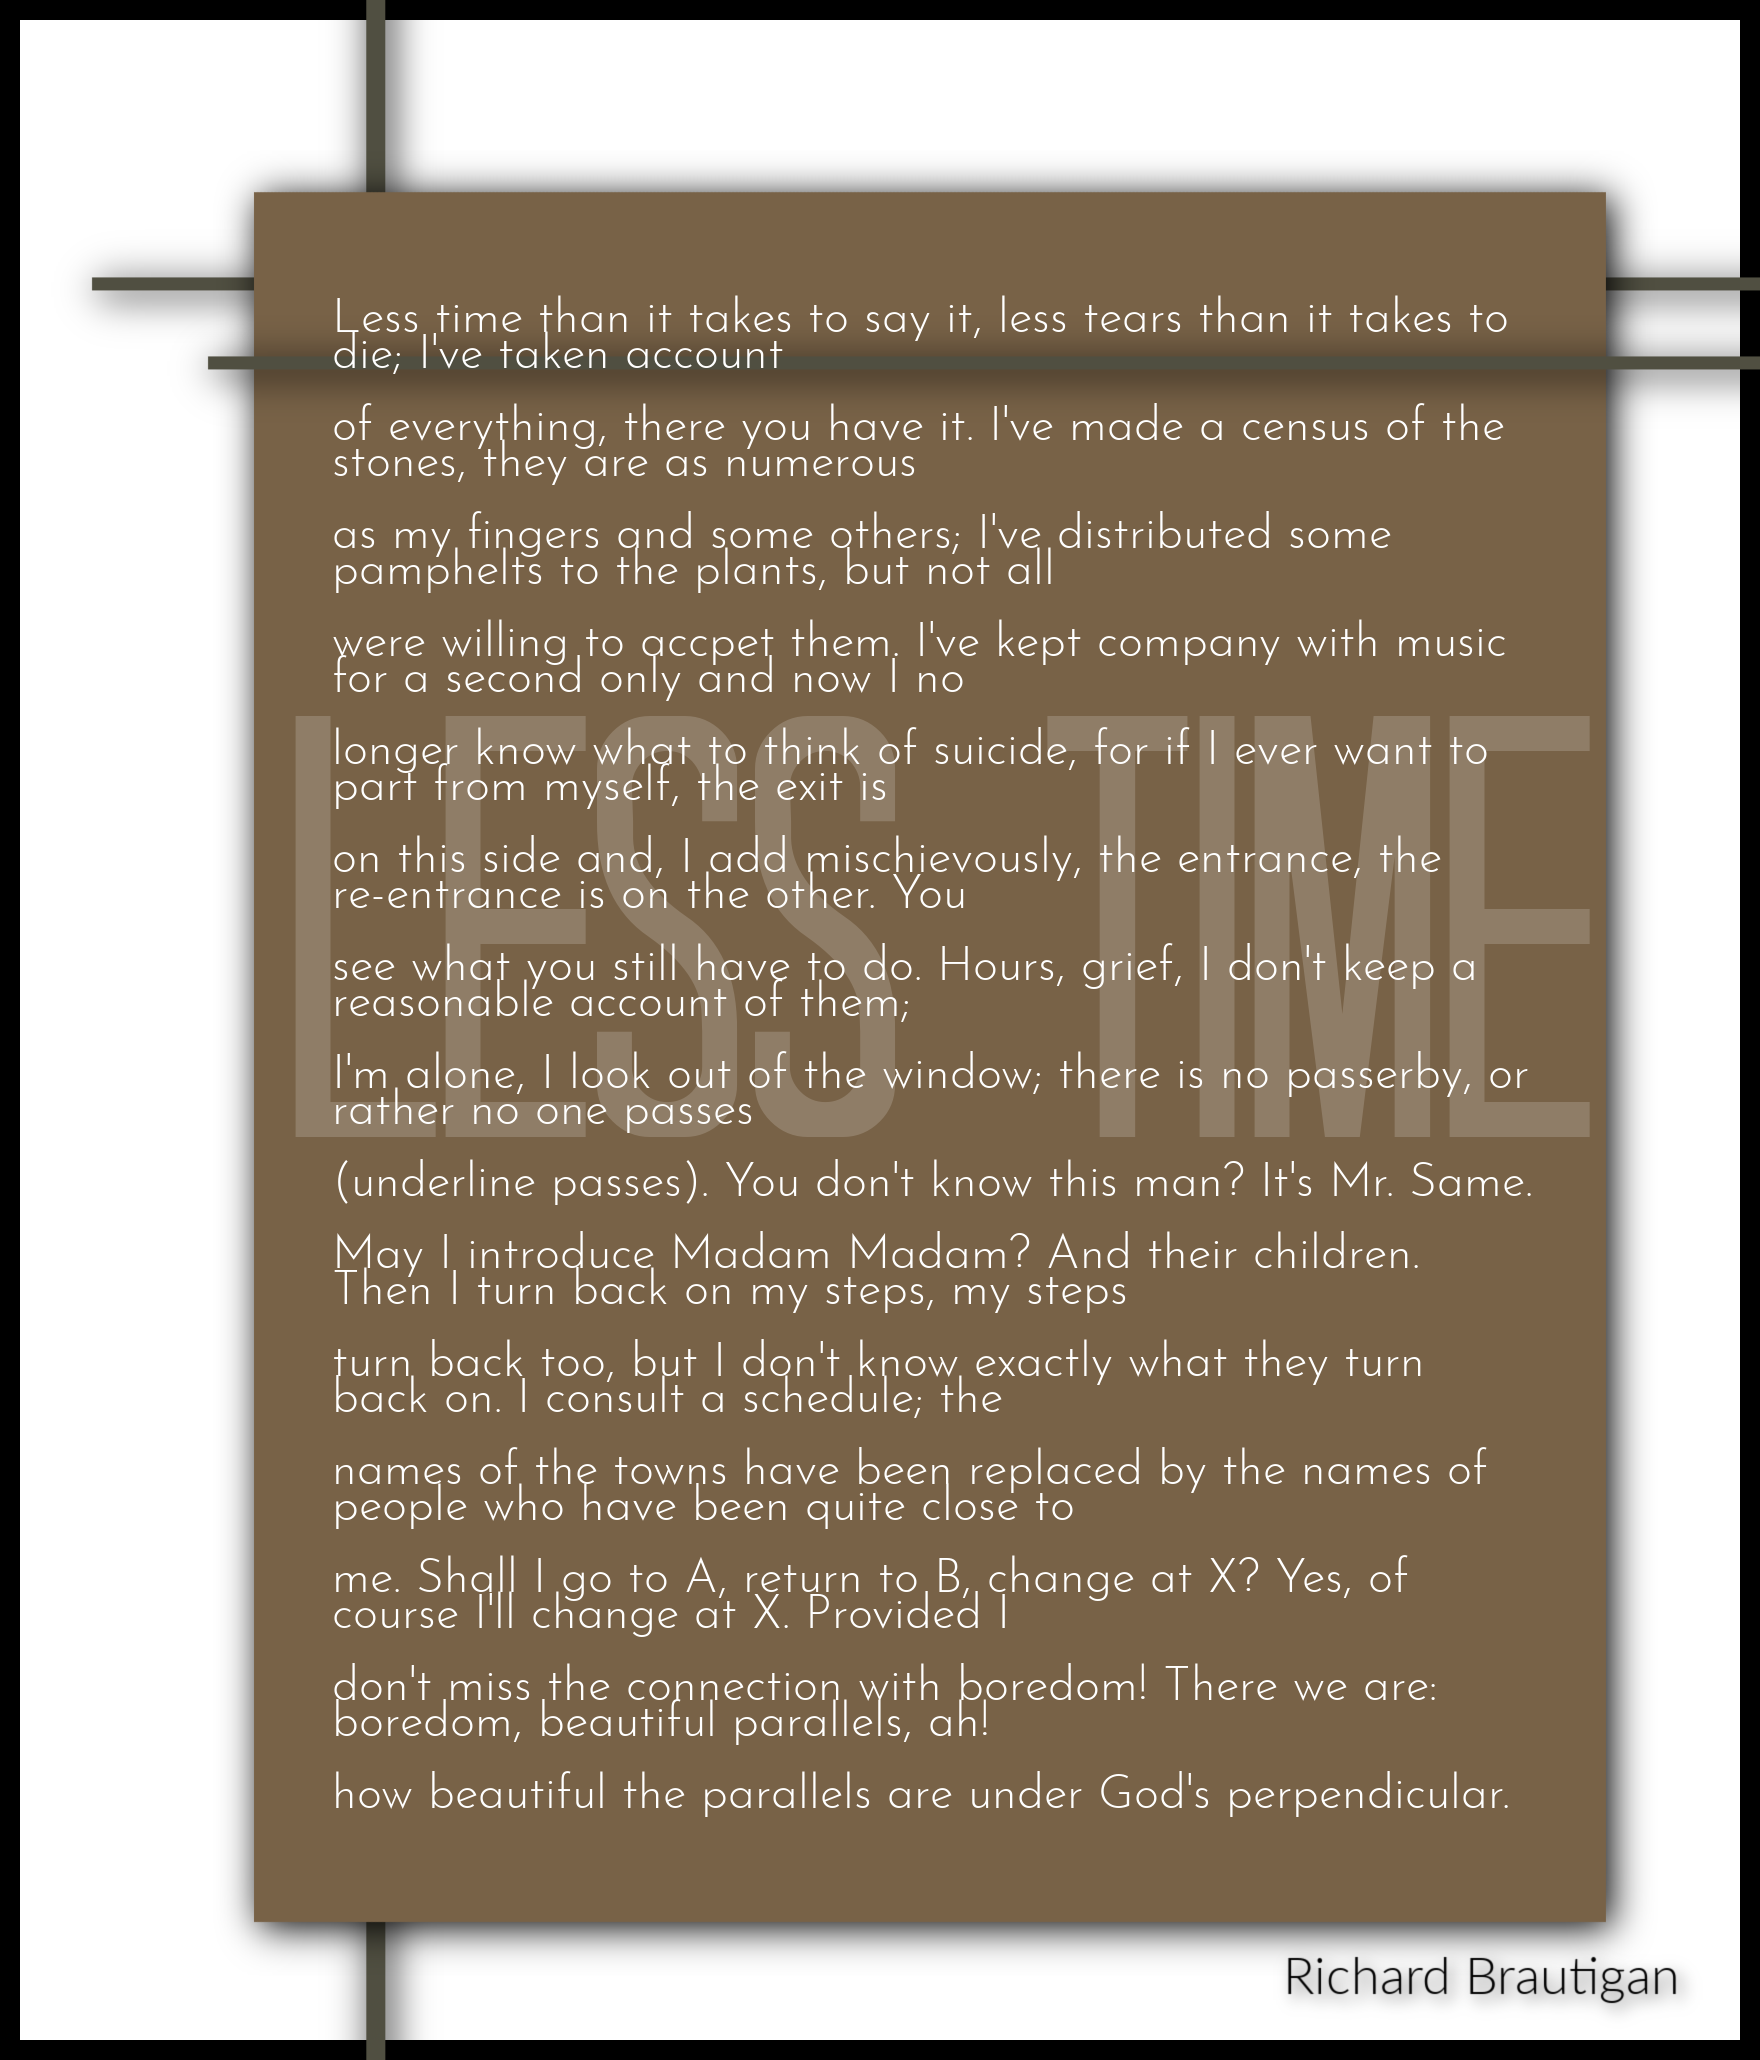 Less time than it takes to say it, less tears than it takes to
die; I've taken account
of everything, there you have it. I've made a census of the
stones, they are as numerous
as my fingers and some others; I've distributed some
pamphelts to the plants, but not all
were willing to accpet them. I've kept company with music
for a second only and now I no
longer know what to think of suicide, for if I ever want to
part from myself, the exit is
on this side and, I add mischievously, the entrance, the
re-entrance is on the other. You
see what you still have to do. Hours, grief, I don't keep a
reasonable account of them;
I'm alone, I look out of the window; there is no passerby, or
rather no one passes
(underline passes). You don't know this man? It's Mr. Same.
May I introduce Madam Madam? And their children.
Then I turn back on my steps, my steps
turn back too, but I don't know exactly what they turn
back on. I consult a schedule; the
names of the towns have been replaced by the names of
people who have been quite close to
me. Shall I go to A, return to B, change at X? Yes, of
course I'll change at X. Provided I
don't miss the connection with boredom! There we are:
boredom, beautiful parallels, ah!
how beautiful the parallels are under God's perpendicular.
LESS TIME
Richard Brautigan